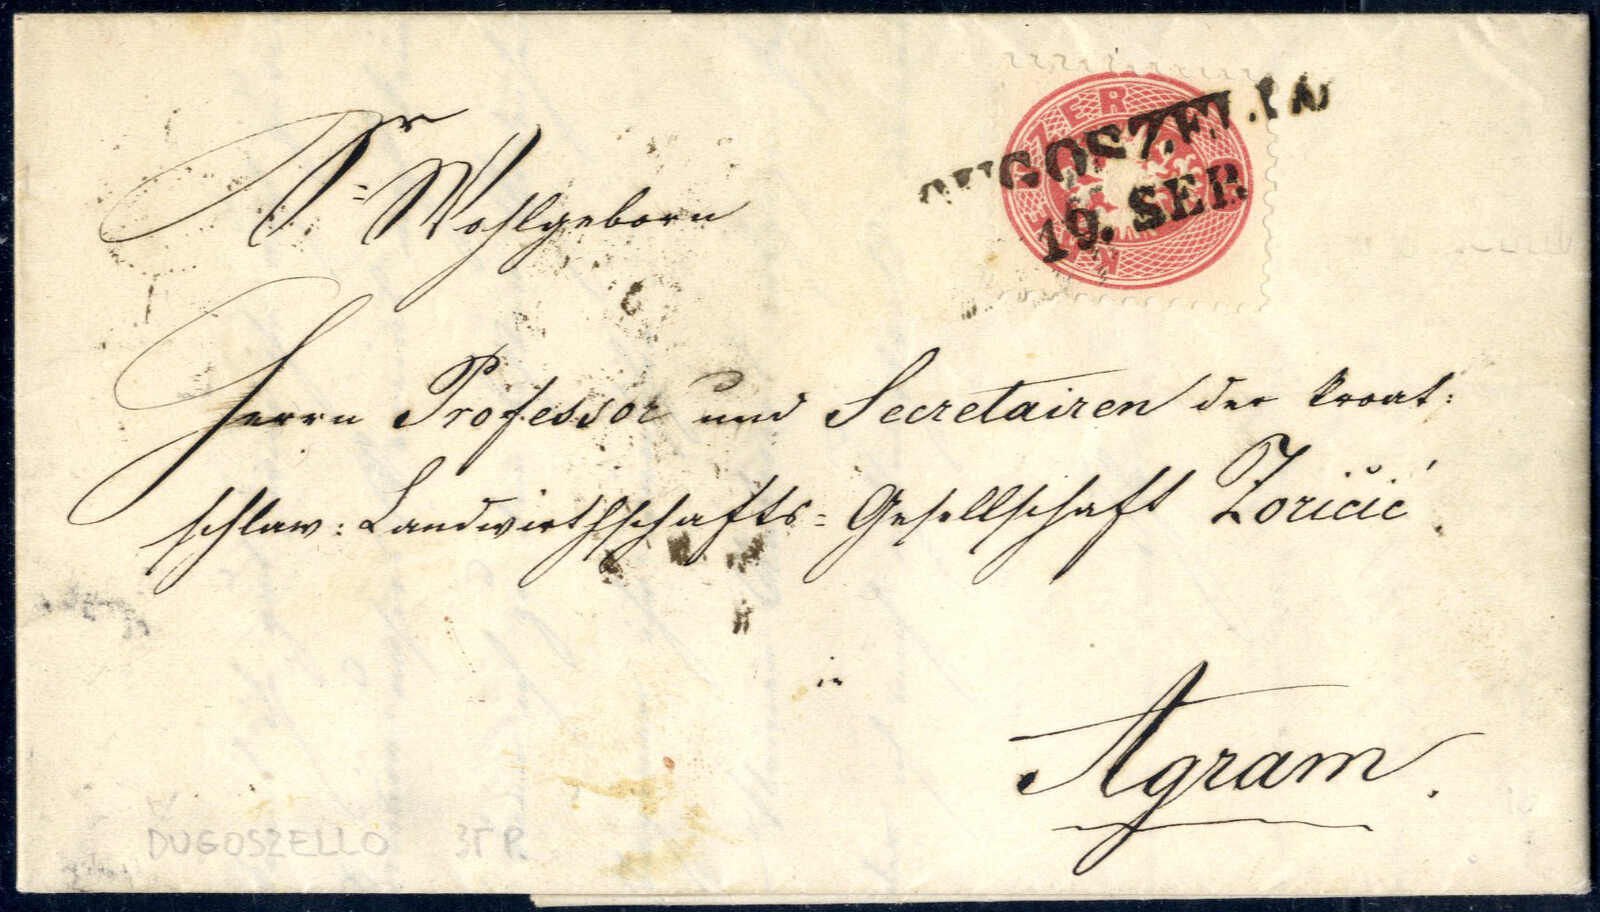 DUGOSZELLO
19. SEP.
Sr Wohlgeborn
Herrn Professor und Secretairen der kroat:
schlaw: Landwirthschafts= Gesellschaft Zoričić
in
Agram.
DUGOSZELLO